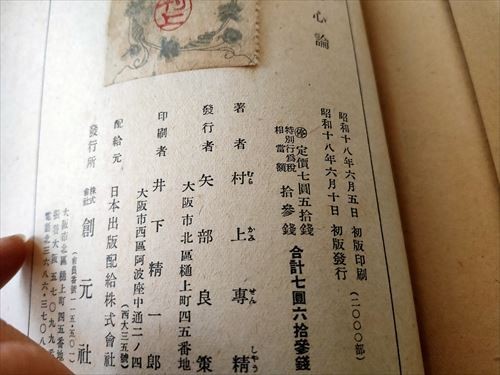 心論
昭和十八年六月五日 初版印刷
昭和十八年六月十日 初版發行
(二〇〇〇部)
㊕ 定價七圓五拾錢
特別行爲税
相當額 拾參錢
合計七圓六拾參錢
著者 村上專精
むらかみせんしやう
發行者 矢部良策
大阪市北區樋上町四五番地
印刷者 井下精一郎
大阪市西區阿波座中通二ノ四
(西大三五號)
配給元 日本出版配給株式會社
發行所 株式會社 創元社
大阪市北區樋上町四五番地